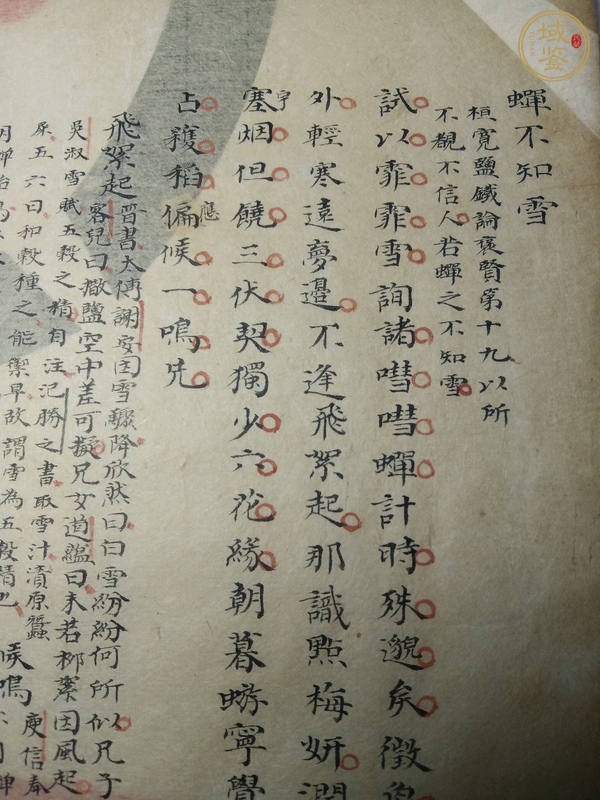 蟬不知雪
桓寬鹽鐵論褒賢第十九以所
不覩不信人若蟬之不知雪
試以霏霏雪詢諸嘒嘒蟬計時殊邈矣徵
外輕寒遠夢邊不逢飛絮起那識點梅妍
塞烟但饒三伏契獨少六花緣朝暮蝣寧覺
宇
占穫稻偏候一鳴先
應
飛絮起晉書太傅謝安因雪驟降欣然曰白雪紛紛何所似兄子
客兒曰撒鹽空中差可擬兄女道韞曰未若柳絮因風起
吳淑雪賦五穀之精自注氾勝之書取雪汁漬原蠶
原五六日和穀種之能禦旱故謂雪為五穀精也
候鳴
庾信奉
域鑒